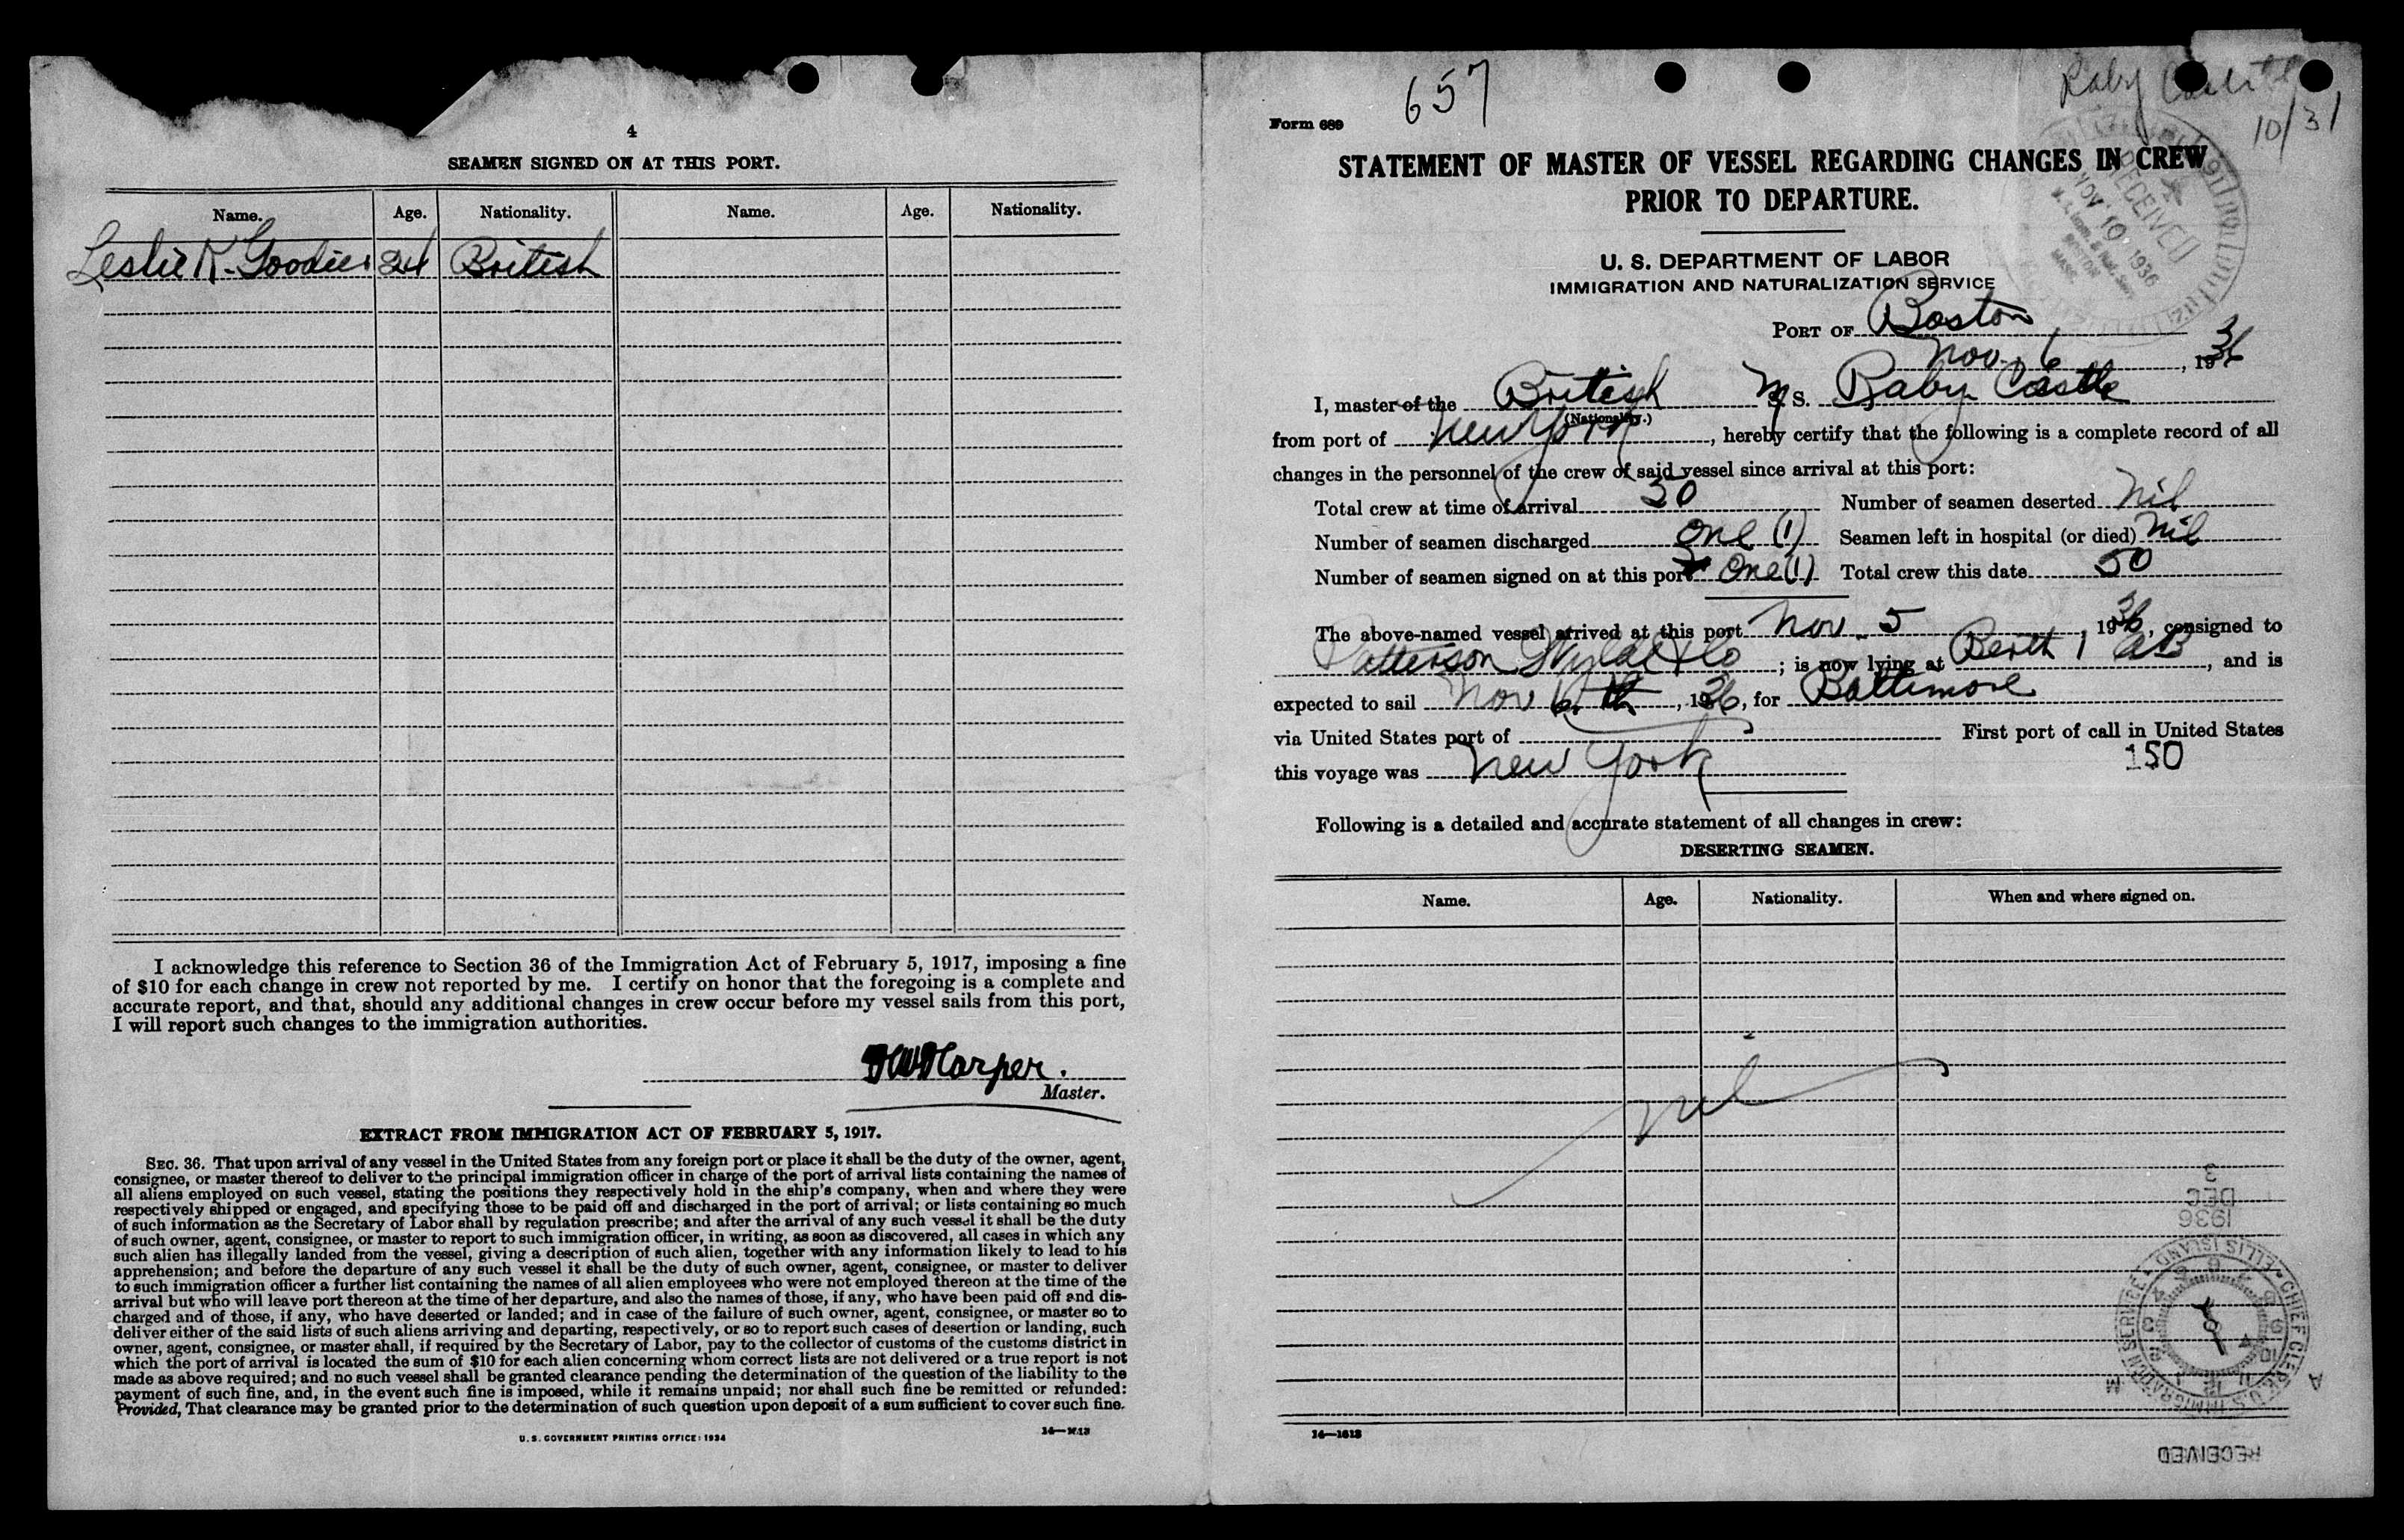 4
SEAMEN SIGNED ON AT THIS PORT.
Name. Age. Nationality. Name. Age. Nationality.
Leslie K. Goodier 24 British
I acknowledge this reference to Section 36 of the Immigration Act of February 5, 1917, imposing a fine
of $10 for each change in crew not reported by me. I certify on honor that the foregoing is a complete and
accurate report, and that, should any additional changes in crew occur before my vessel sails from this port,
I will report such changes to the immigration authorities.
HW Harper.
Master.
EXTRACT FROM IMMIGRATION ACT OF FEBRUARY 5, 1917.
SEC. 36. That upon arrival of any vessel in the United States from any foreign port or place it shall be the duty of the owner, agent,
consignee, or master thereof to deliver to the principal immigration officer in charge of the port of arrival lists containing the names of
all aliens employed on such vessel, stating the positions they respectively hold in the ship's company, when and where they were
respectively shipped or engaged, and specifying those to be paid off and discharged in the port of arrival; or lists containing so much
of such information as the Secretary of Labor shall by regulation prescribe; and after the arrival of any such vessel it shall be the duty
of such owner, agent, consignee, or master to report to such immigration officer, in writing, as soon as discovered, all cases in which any
such alien has illegally landed from the vessel, giving a description of such alien, together with any information likely to lead to his
apprehension; and before the departure of any such vessel it shall be the duty of such owner, agent, consignee, or master to deliver
to such immigration officer a further list containing the names of all alien employees who were not employed thereon at the time of the
arrival but who will leave port thereon at the time of her departure, and also the names of those, if any, who have been paid off and dis-
charged and of those, if any, who have deserted or landed; and in case of the failure of such owner, agent, consignee, or master so to
deliver either of the said lists of such aliens arriving and departing, respectively, or so to report such cases of desertion or landing, such
owner, agent, consignee, or master shall, if required by the Secretary of Labor, pay to the collector of customs of the customs district in
which the port of arrival is located the sum of $10 for each alien concerning whom correct lists are not delivered or a true report is not
made as above required; and no such vessel shall be granted clearance pending the determination of the question of the liability to the
payment of such fine, and, in the event such fine is imposed, while it remains unpaid; nor shall such fine be remitted or refunded:
Provided, That clearance may be granted prior to the determination of such question upon deposit of a sum sufficient to cover such fine.
U. S. GOVERNMENT PRINTING OFFICE: 1934
14—1613
657
Raby Castle
10/31
Form 689
STATEMENT OF MASTER OF VESSEL REGARDING CHANGES IN CREW
PRIOR TO DEPARTURE.
RECEIVED
NOV 10 1936
BOSTON
MASS.
U. S. DEPARTMENT OF LABOR
IMMIGRATION AND NATURALIZATION SERVICE
PORT OF Boston,
Nov. 6, 1936
I, master of the British M/S. Raby Castle
(Nationality.)
from port of New York, hereby certify that the following is a complete record of all
changes in the personnel of the crew of said vessel since arrival at this port:
Total crew at time of arrival 50 Number of seamen deserted Nil
Number of seamen discharged One (1) Seamen left in hospital (or died) Nil
Number of seamen signed on at this port One (1) Total crew this date 50
The above-named vessel arrived at this port Nov. 5, 1936, consigned to
Patterson Wylde & Co; is now lying at Berth 1 AB, and is
expected to sail Nov 6th, 1936, for Baltimore
via United States port of First port of call in United States
this voyage was New York
150
Following is a detailed and accurate statement of all changes in crew:
DESERTING SEAMEN.
Name. Age. Nationality. When and where signed on.
Nil
3
DEC
1936
CHIEF CLERK U.S. IMMIGRATION SERVICE • ELLIS ISLAND
A M
RECEIVED
14—1613